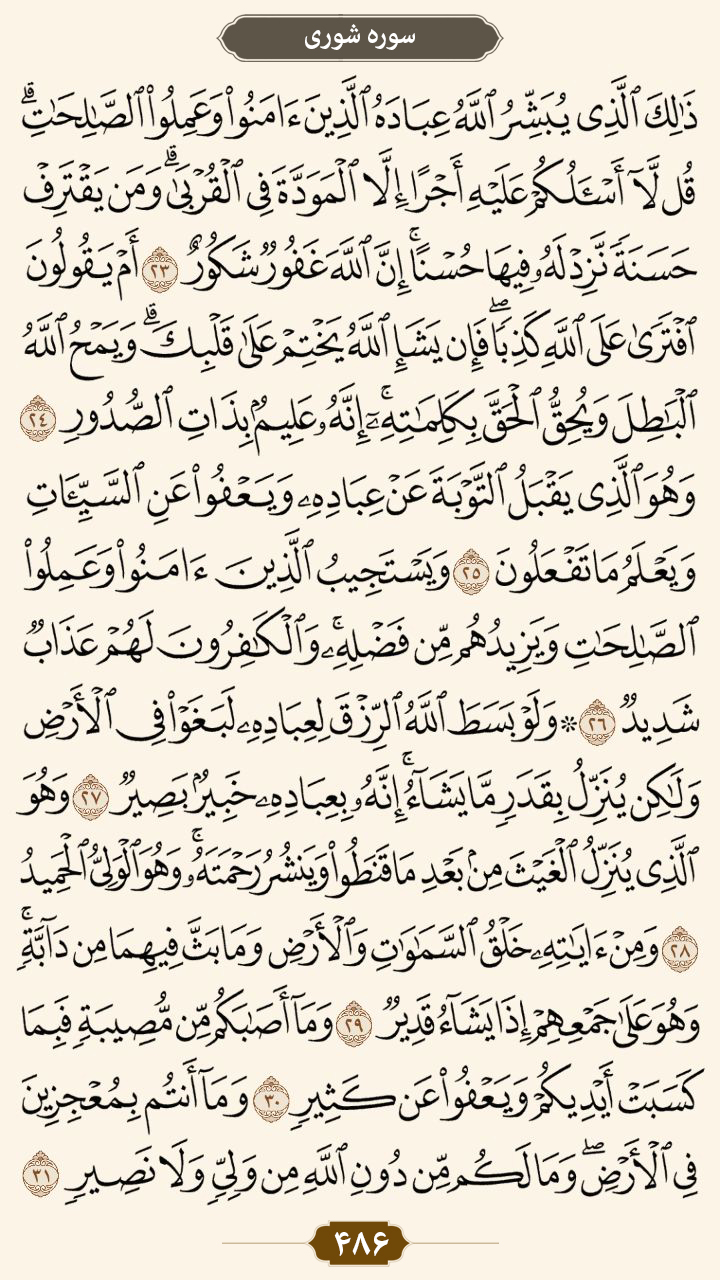 سوره شوری
ذَٰلِكَ ٱلَّذِى يُبَشِّرُ ٱللَّهُ عِبَادَهُ ٱلَّذِينَ ءَامَنُوا۟ وَعَمِلُوا۟ ٱلصَّـٰلِحَـٰتِ ۗ
قُل لَّآ أَسْـَٔلُكُمْ عَلَيْهِ أَجْرًا إِلَّا ٱلْمَوَدَّةَ فِى ٱلْقُرْبَىٰ ۗ وَمَن يَقْتَرِفْ
حَسَنَةً نَّزِدْ لَهُۥ فِيهَا حُسْنًا ۚ إِنَّ ٱللَّهَ غَفُورٌ شَكُورٌ ٢٣ أَمْ يَقُولُونَ
ٱفْتَرَىٰ عَلَى ٱللَّهِ كَذِبًا ۖ فَإِن يَشَإِ ٱللَّهُ يَخْتِمْ عَلَىٰ قَلْبِكَ ۗ وَيَمْحُ ٱللَّهُ
ٱلْبَـٰطِلَ وَيُحِقُّ ٱلْحَقَّ بِكَلِمَـٰتِهِۦٓ ۚ إِنَّهُۥ عَلِيمٌۢ بِذَاتِ ٱلصُّدُورِ ٢٤
وَهُوَ ٱلَّذِى يَقْبَلُ ٱلتَّوْبَةَ عَنْ عِبَادِهِۦ وَيَعْفُوا۟ عَنِ ٱلسَّيِّـَٔاتِ
وَيَعْلَمُ مَا تَفْعَلُونَ ٢٥ وَيَسْتَجِيبُ ٱلَّذِينَ ءَامَنُوا۟ وَعَمِلُوا۟
ٱلصَّـٰلِحَـٰتِ وَيَزِيدُهُم مِّن فَضْلِهِۦ ۚ وَٱلْكَـٰفِرُونَ لَهُمْ عَذَابٌ
شَدِيدٌ ٢٦ ۞ وَلَوْ بَسَطَ ٱللَّهُ ٱلرِّزْقَ لِعِبَادِهِۦ لَبَغَوْا۟ فِى ٱلْأَرْضِ
وَلَـٰكِن يُنَزِّلُ بِقَدَرٍ مَّا يَشَآءُ ۚ إِنَّهُۥ بِعِبَادِهِۦ خَبِيرٌۢ بَصِيرٌ ٢٧ وَهُوَ
ٱلَّذِى يُنَزِّلُ ٱلْغَيْثَ مِنۢ بَعْدِ مَا قَنَطُوا۟ وَيَنشُرُ رَحْمَتَهُۥ ۚ وَهُوَ ٱلْوَلِىُّ ٱلْحَمِيدُ
٢٨ وَمِنْ ءَايَـٰتِهِۦ خَلْقُ ٱلسَّمَـٰوَٰتِ وَٱلْأَرْضِ وَمَا بَثَّ فِيهِمَا مِن دَآبَّةٍ ۚ
وَهُوَ عَلَىٰ جَمْعِهِمْ إِذَا يَشَآءُ قَدِيرٌ ٢٩ وَمَآ أَصَـٰبَكُم مِّن مُّصِيبَةٍ فَبِمَا
كَسَبَتْ أَيْدِيكُمْ وَيَعْفُوا۟ عَن كَثِيرٍ ٣٠ وَمَآ أَنتُم بِمُعْجِزِينَ
فِى ٱلْأَرْضِ ۖ وَمَا لَكُم مِّن دُونِ ٱللَّهِ مِن وَلِىٍّ وَلَا نَصِيرٍ ٣١
۴۸۶